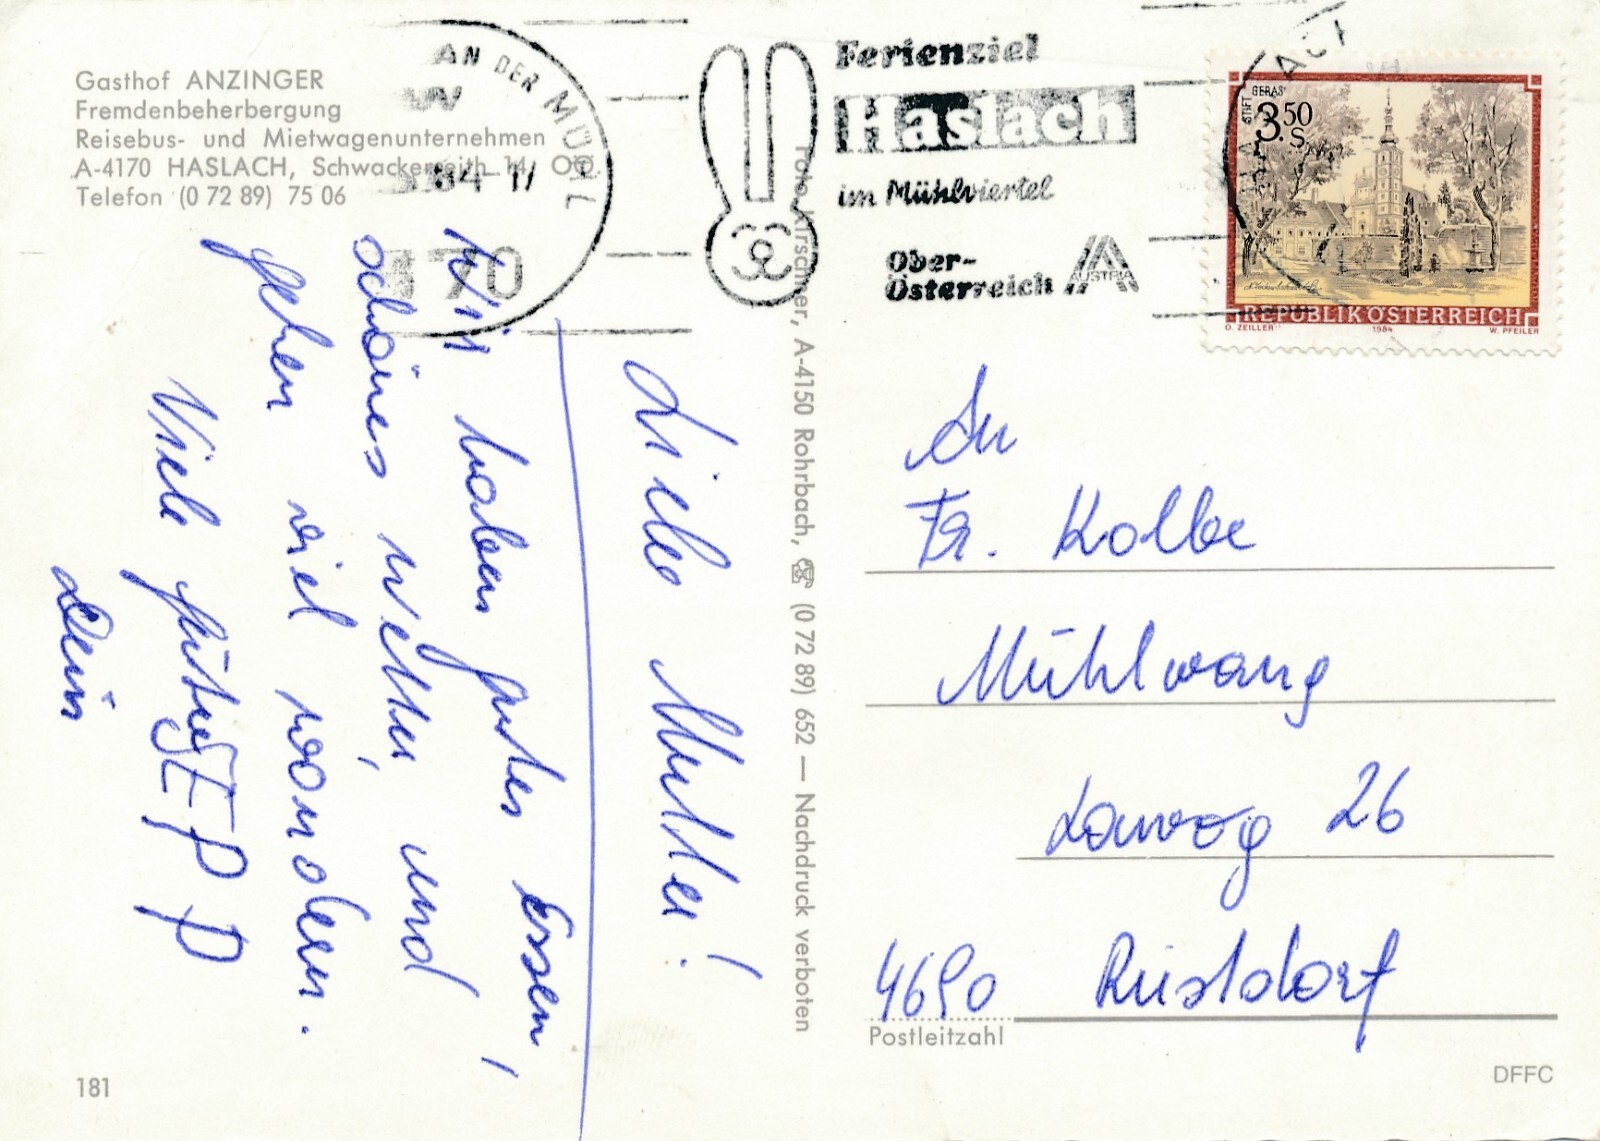 Gasthof ANZINGER
Fremdenbeherbergung
Reisebus- und Mietwagenunternehmen
A-4170 HASLACH, Schwackerreith 14, OÖ.
Telefon (0 72 89) 75 06
AN DER MÜHL
84-17
170
Ferienziel
Haslach
im Mühlviertel
Ober-
Österreich
AUSTRIA
STIFT GERAS
3.50
S
REPUBLIK ÖSTERREICH
O. ZEILLER 1984 W. PFEILER
Liebe Mutter!
Wir haben gutes Essen,
schönes Wetter, und
gehen viel wandern.
Viele
Dein
Foto Kirschner, A-4150 Rohrbach, ☎ (0 72 89) 652 — Nachdruck verboten
An
Fr. Kolbe
Mühlwang
26
4690
Postleitzahl
181
DFFC